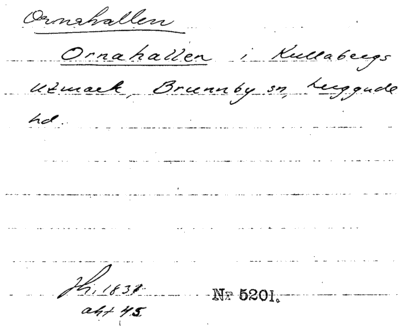 Ornahallen
Ornahallen i Kullabergs
utmark, Brunnby sn, Luggude
hd.
Jh. 1831
akt 45
Nr 5201.